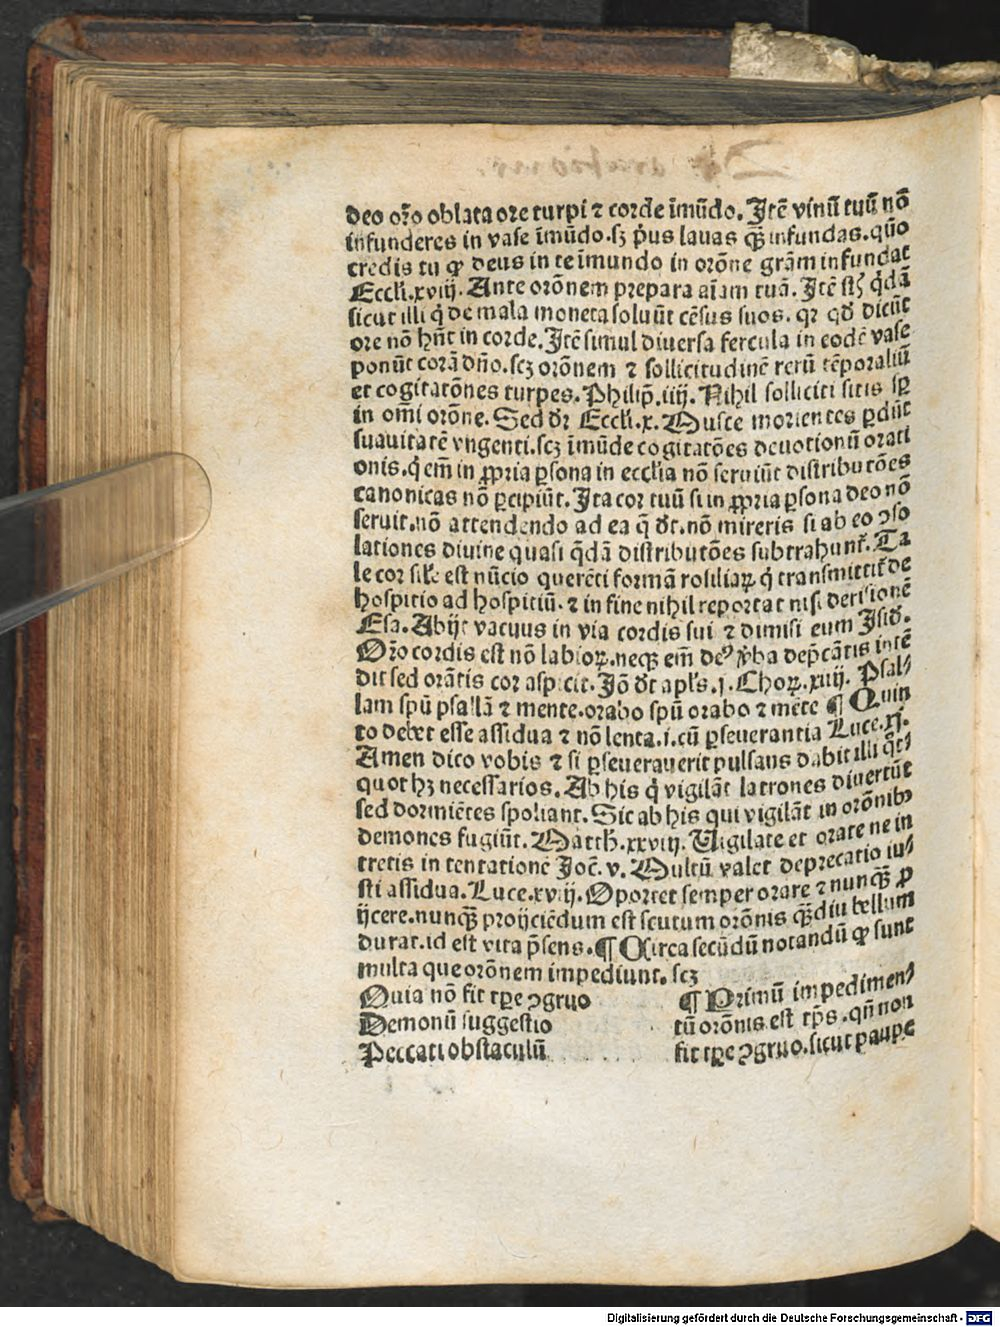 deo oro̅ oblata ore turpi ⁊ corde im̅u̅do. Ite̅ vinu̅ tuu̅ no̅
infunderes in vase im̅u̅do.sꝫ p̍us lauas qꝫ̅ infundas.quo̅
credis tu ꝙ deus in te im̅undo in oro̅ne gra̅m infundat
Eccli.xviij. Ante oro̅nem prepara ai̅am tua̅. Ite̅ q̍da̅
sicut illi q̍ de mala moneta soluu̅t ce̅sus suos. qꝛ qd̅ dicu̅t
ore no̅ hn̅t in corde. Ite̅ simul diuersa fercula in eode̅ vase
ponu̅t cora̅ dn̅o.scꝫ oro̅nem ⁊ sollicitudine̅ reru̅ te̅poraliu̅
et cogitato̅nes turpes. Philip̅.iiij. Nihil solliciti sitis sꝑ
in om̅i oro̅ne. Sed dr̅ Eccli.x. Musce morientes ꝑdu̅t
suauitate̅ vngenti.scꝫ im̅u̅de cogitato̅es deuotionu̅ orati
onis.q̍ em̅ in ꝓpria ꝑsona in eccl̅ia no̅ seruiu̅t distributo̅es
canonicas no̅ ꝑcipiu̅t. Ita cor tuu̅ si in ꝓpria ꝑsona deo no̅
seruit.no̅ attendendo ad ea q̅ dr̅.no̅ mireris si ab eo ↄso
lationes diuine quasi q̅da̅ distributo̅es subtrahunt᷑. Ta
le cor sil̅e est nu̅cio quere̅ti forma̅ rosiliaꝝ q̍ transmittit᷑ de
hospitio ad hospitiu̅. ⁊ in fine nihil reportat nisi derisione̅
Esa. Abijt vacuus in via cordis sui ⁊ dimisi eum Isid̅.
Oro̅ cordis est no̅ labioꝝ.neqꝫ em̅ deꝰ v̍ba dep̅ca̅tis inte̅
dit sed ora̅tis cor aspicit. Io̅ dt̅ apl̅s.j.Choꝝ.xiiij. Psal⸗
lam spu̅ psalla̅ ⁊ mente.orabo spu̅ orabo ⁊ me̅te ¶ Quin
to debet esse assidua ⁊ no̅ lenta.i.cu̅ ꝑseuerantia Luce.xj.
Amen dico vobis ⁊ si ꝑseuerauerit pulsans dabit illi q̅t⸗
quot hꝫ necessarios. Ab his q̍ vigila̅t latrones diuertu̅t
sed dormie̅tes spoliant. Sic ab his qui vigila̅t in oro̅nibꝰ
demones fugiu̅t. Matth.xxviij. Vigilate et orate ne in
tretis in tentatione̅ Joc̅. v. Multu̅ valet deprecatio iu⸗
sti assidua. Luce.xviij. Oportet semper orare ⁊ nunqꝫ̅ ꝓ
ijcere.nunqꝫ̅ proijcie̅dum est scutum oro̅nis qꝫ̅diu bellum
durat.id est vita p̅sens. ¶ Circa secu̅du̅ notandu̅ ꝙ sunt
multa que oro̅nem impediunt. scꝫ
Quia no̅ fit tꝑe ↄgruo
Demonu̅ suggestio
Peccati obstaculu̅
¶ Primu̅ impedimen⸗
tu̅ oro̅nis est tp̅s.qn̅ non
fit tꝑe ↄgruo.sicut pauꝑe
Digitalisierung gefördert durch die Deutsche Forschungsgemeinschaft - DFG